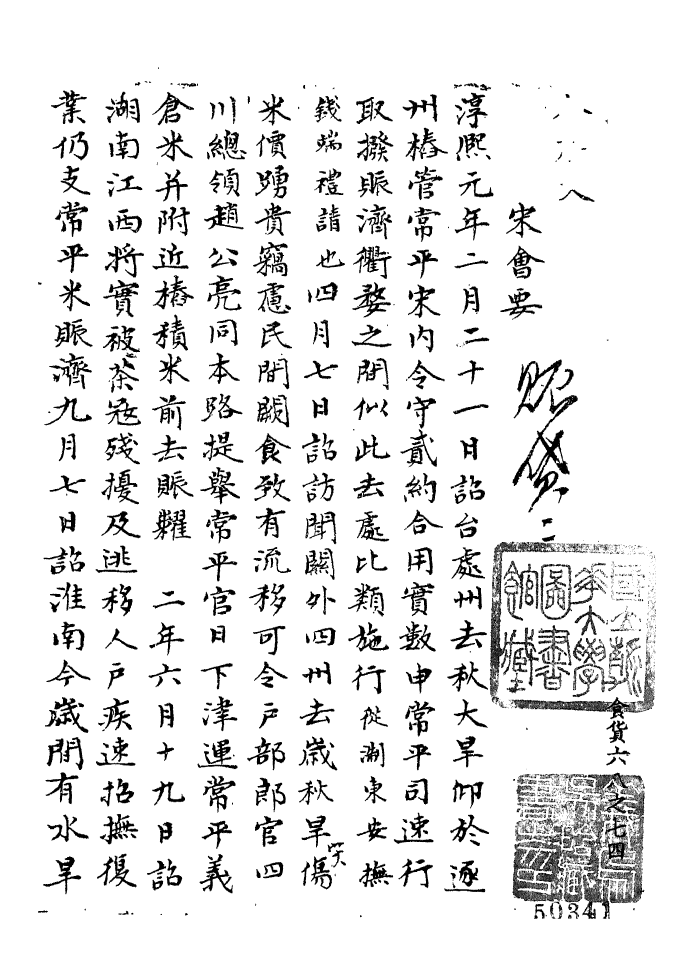 宋會要
賑貸二
淳熙元年二月二十一日詔台處州去秋大旱仰於逐
州樁管常平宋内令守貳約合用實數申常平司速行
取撥賑濟衢婺之間似此去處比類施行從淛東安撫
錢端禮請也四月七日詔訪聞關外四州去歲秋旱傷
米價踴貴竊慮民間闕食致有流移可令戶部郎官四
川總領趙公亮同本路提舉常平官日下津運常平義
倉米并附近樁積米前去賑糶 二年六月十九日詔
湖南江西將實被茶寇殘擾及逃移人戶疾速招撫復
業仍支常平米賑濟九月七日詔淮南今歲間有水旱
食貨六八之七四
50341